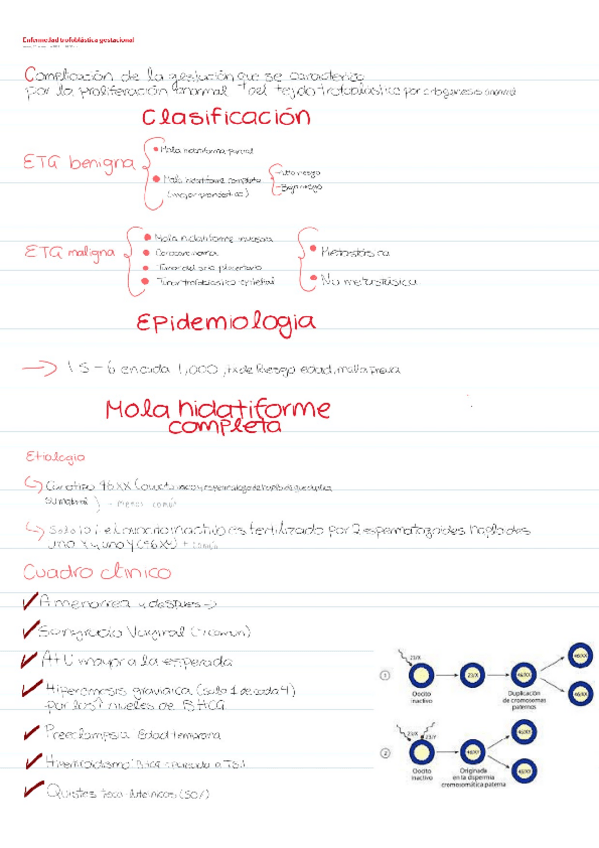 Enfermedad trofoblástica gestacional
Complicación de la gestación que se caracteriza
por la proliferación anormal del tejido trofoblástico por ontogenesis anormal
Clasificación
ETG benigna
Mola hidatiforme parcial
Mola hidatiforme completa
(mejor pronostico)
Alto riesgo
Bajo riesgo
ETG maligna
Mola hidatiforme invasora
Coriocarcinoma
Tumor del sitio placentario
Tumor trofoblastico epitelial
Metastásica
No metastásica
Epidemiologia
1.5 - 6 en cada 1,000, de Riesgo edad, molla previa
Mola hidatiforme
completa
Etiologia
Cariotipo 46XX
- menos común
Solo 10% el ovocito inactivo es fertilizado por 2 espermatozoides haploides
una X y uno Y (46XY) + común
Cuadro clínico
Amenorrea y despues
Sangrado Vaginal (+común)
AFU mayor a la esperada
Hiperemesis gravídica (solo 1 de cada 4)
por los ↑ niveles de BHCG
Preeclampsia Edad temprana
Hipertiroidismo BHCG a TSH
Quistes teca-luteinicos (50%)
1
23/X
Oocito
inactivo
23/X
46/XX
Duplicación
de cromosomas
paternos
46/XX
46/XX
2
23/X
23/Y
Oocito
inactivo
46/XX
Originada
en la dispermia
cromosomática paterna
46/XX
46/XX